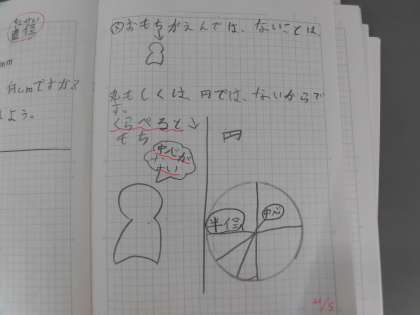 直径
mm
何cmですか?
しょう。
⑤おもちがえんでは、ないことは、
丸もしくは、円では、ないからで
す。
くらべると↓
もち
円
中心が
ない
中心
半径